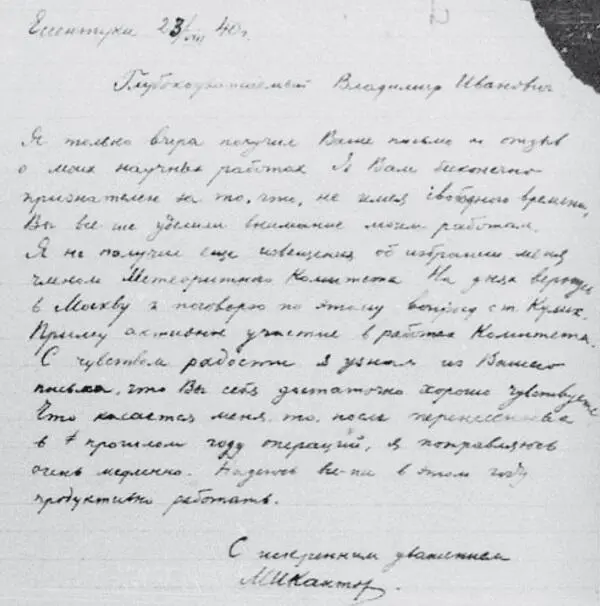 Ессентуки 23/VIII 40г.
Глубокоуважаемый Владимир Иванович
Я только вчера получил Ваше письмо и отзыв
о моих научных работах Я Вам бесконечно
признателен за то, что, не имея свободного времени,
Вы все-же уделили внимание моим работам.
Я не получил еще извещения об избрании меня
членом Метеоритного Комитета На днях вернусь
в Москву и поговорю по этому вопросу с т. Кулик.
Приму активное участие в работах Комитета.
С чувством радости я узнал из Вашего
письма, что Вы себя достаточно хорошо чувствуете
Что касается меня, то, после перенесенных
в прошлом году операций, я поправляюсь
очень медленно. Надеюсь все-же в этом году
продуктивно работать.
С искренним уважением
МИКантор.